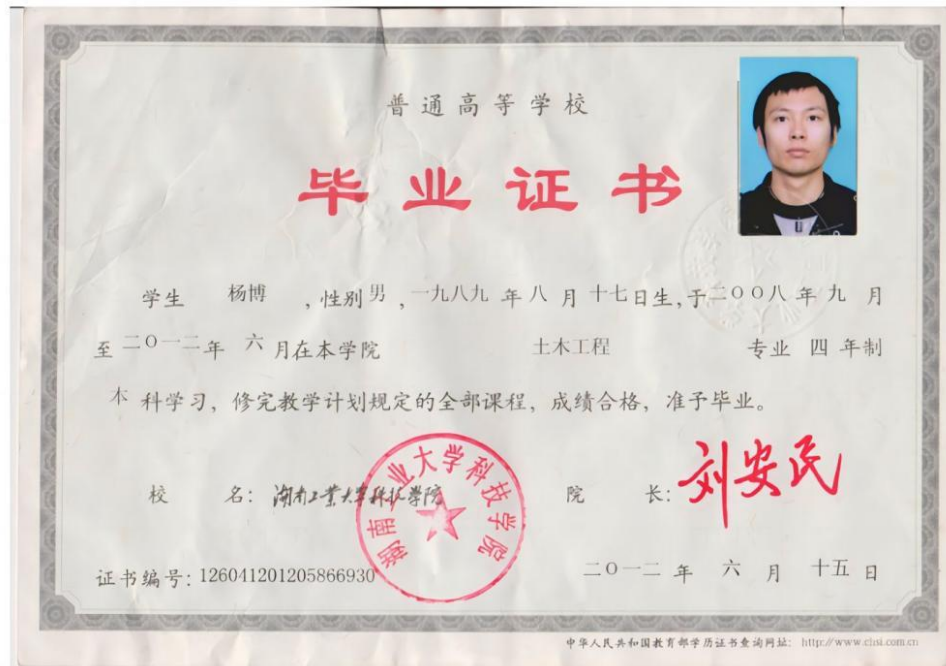 普通高等学校
毕业证书
学生 杨博 ，性别男，一九八九年八月十七日生，于二〇〇八年九月
至二〇一二年 六月在本学院 土木工程 专业 四年制
本科学习，修完教学计划规定的全部课程，成绩合格，准予毕业。
校 名：湖南工业大学科技学院 院 长：刘安民
湖南工业大学科技学院
证书编号：126041201205866930 二〇一二年 六月 十五日
中华人民共和国教育部学历证书查询网址：http://www.chsi.com.cn